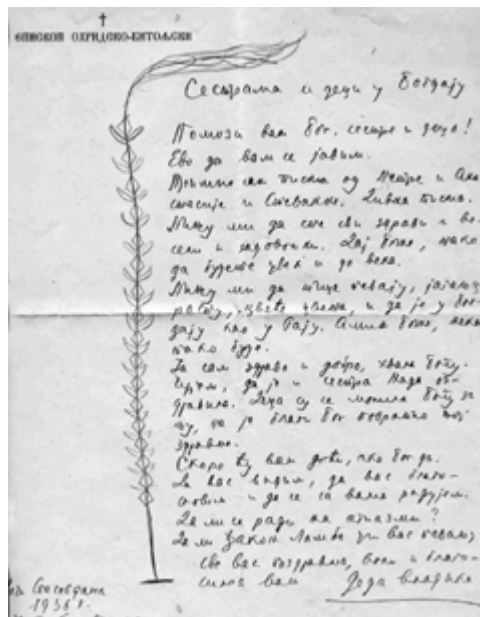 ЕПИСКОП ОХРИДСКО-БИТОЉСКИ
Сестрама и деци у Богдају
Помози вам Бог, сестре и децо!
Ево да вам се јавим.
сам писма од и Ана
стасије и Стевани. писма.
Пишу ми да сте сви здрави и ве
сели и задовољни. Дај Боже, тако
да будете увек и до века.
Пишу ми да птице певају, јагањци
цвеће цвета, и да је у Бог
дају као у Рају. Боже, нека
тако буде.
Ја сам здраво и добро, хвала Богу.
да је и сестра Нада оз-
дравила. Деца су се молила Богу за
њу, па је благи Бог повратио јој
здравље.
Скоро ћу вам доћи, ако Бог да.
Да вас видим, да вас благо-
словим и да се са вама радујем.
Да ли се ради на
Да ли ђакон вас
Све вас поздравља, воли и благо-
сиља вам Деда Владика
1936 г.